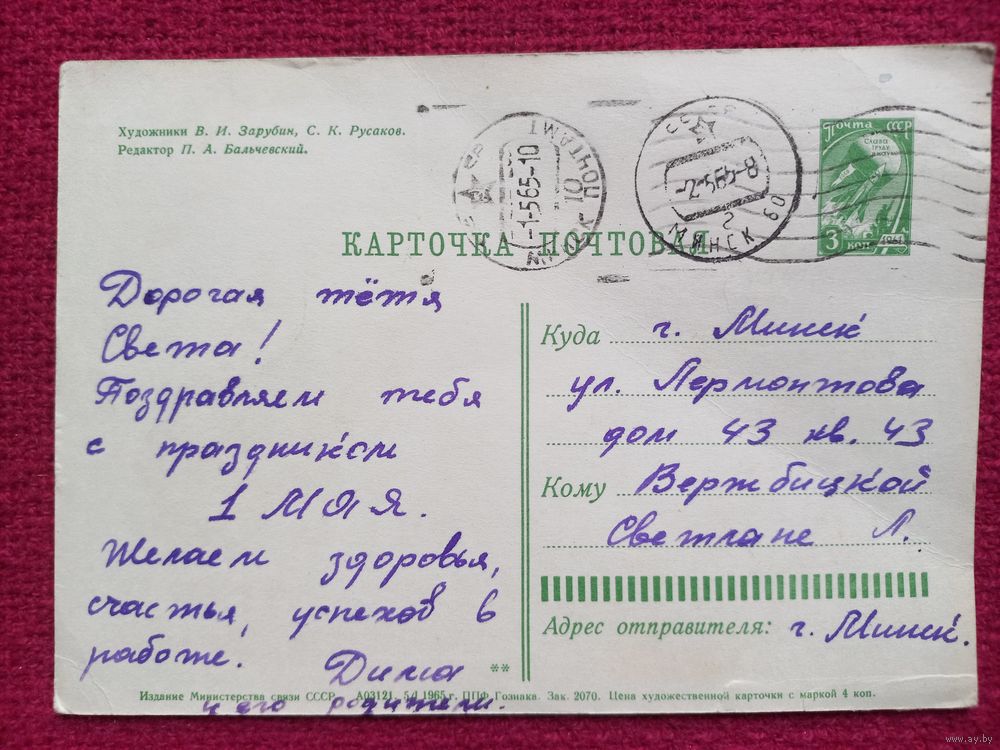 Художники В. И. Зарубин, С. К. Русаков.
Редактор П. А. Бальчевский.
ПОЧТАМТ
101
-1.565-10
СССР
МИНСК 60
2
Почта СССР
Слава труду
3 коп
1961
КАРТОЧКА ПОЧТОВАЯ
Дорогая тётя
Света!
Поздравляем тебя
с праздником
1 МАЯ.
Желаем здоровья,
счастья, успехов в
работе.
Дима
и его родители.
Куда г. Минск
ул. Лермонтова
дом 43 кв. 43
Кому Вержбицкой
Светлане Л.
Адрес отправителя: г. Минск.
**
Издание Министерства связи СССР. А03121. 5/I 1965 г. ППФ Гознака. Зак. 2070. Цена художественной карточки с маркой 4 коп.
www.ay.by